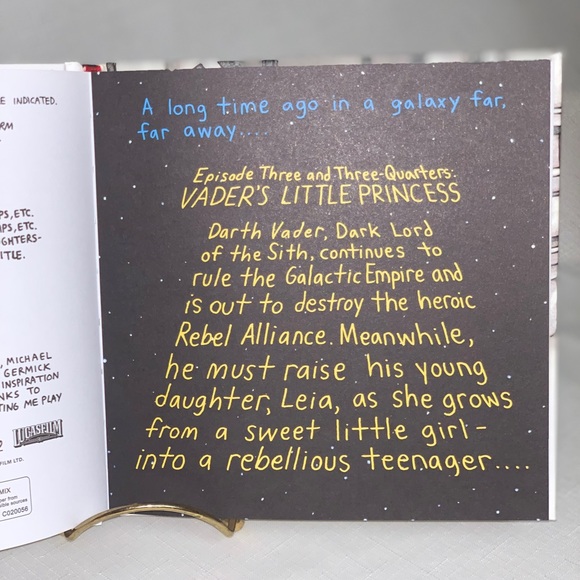 E INDICATED.
RM
PS, ETC.
PS, ETC.
GHTERS-
ITLE.
, MICHAEL
GERMICK
INSPIRATION
NKS TO
TING ME PLAY
LUCASFILM
FILM LTD.
MIX
per from
sible sources
C020056
A long time ago in a galaxy far,
far away....
Episode Three and Three-Quarters:
VADER'S LITTLE PRINCESS
Darth Vader, Dark Lord
of the Sith, continues to
rule the Galactic Empire and
is out to destroy the heroic
Rebel Alliance. Meanwhile,
he must raise his young
daughter, Leia, as she grows
from a sweet little girl-
into a rebellious teenager....